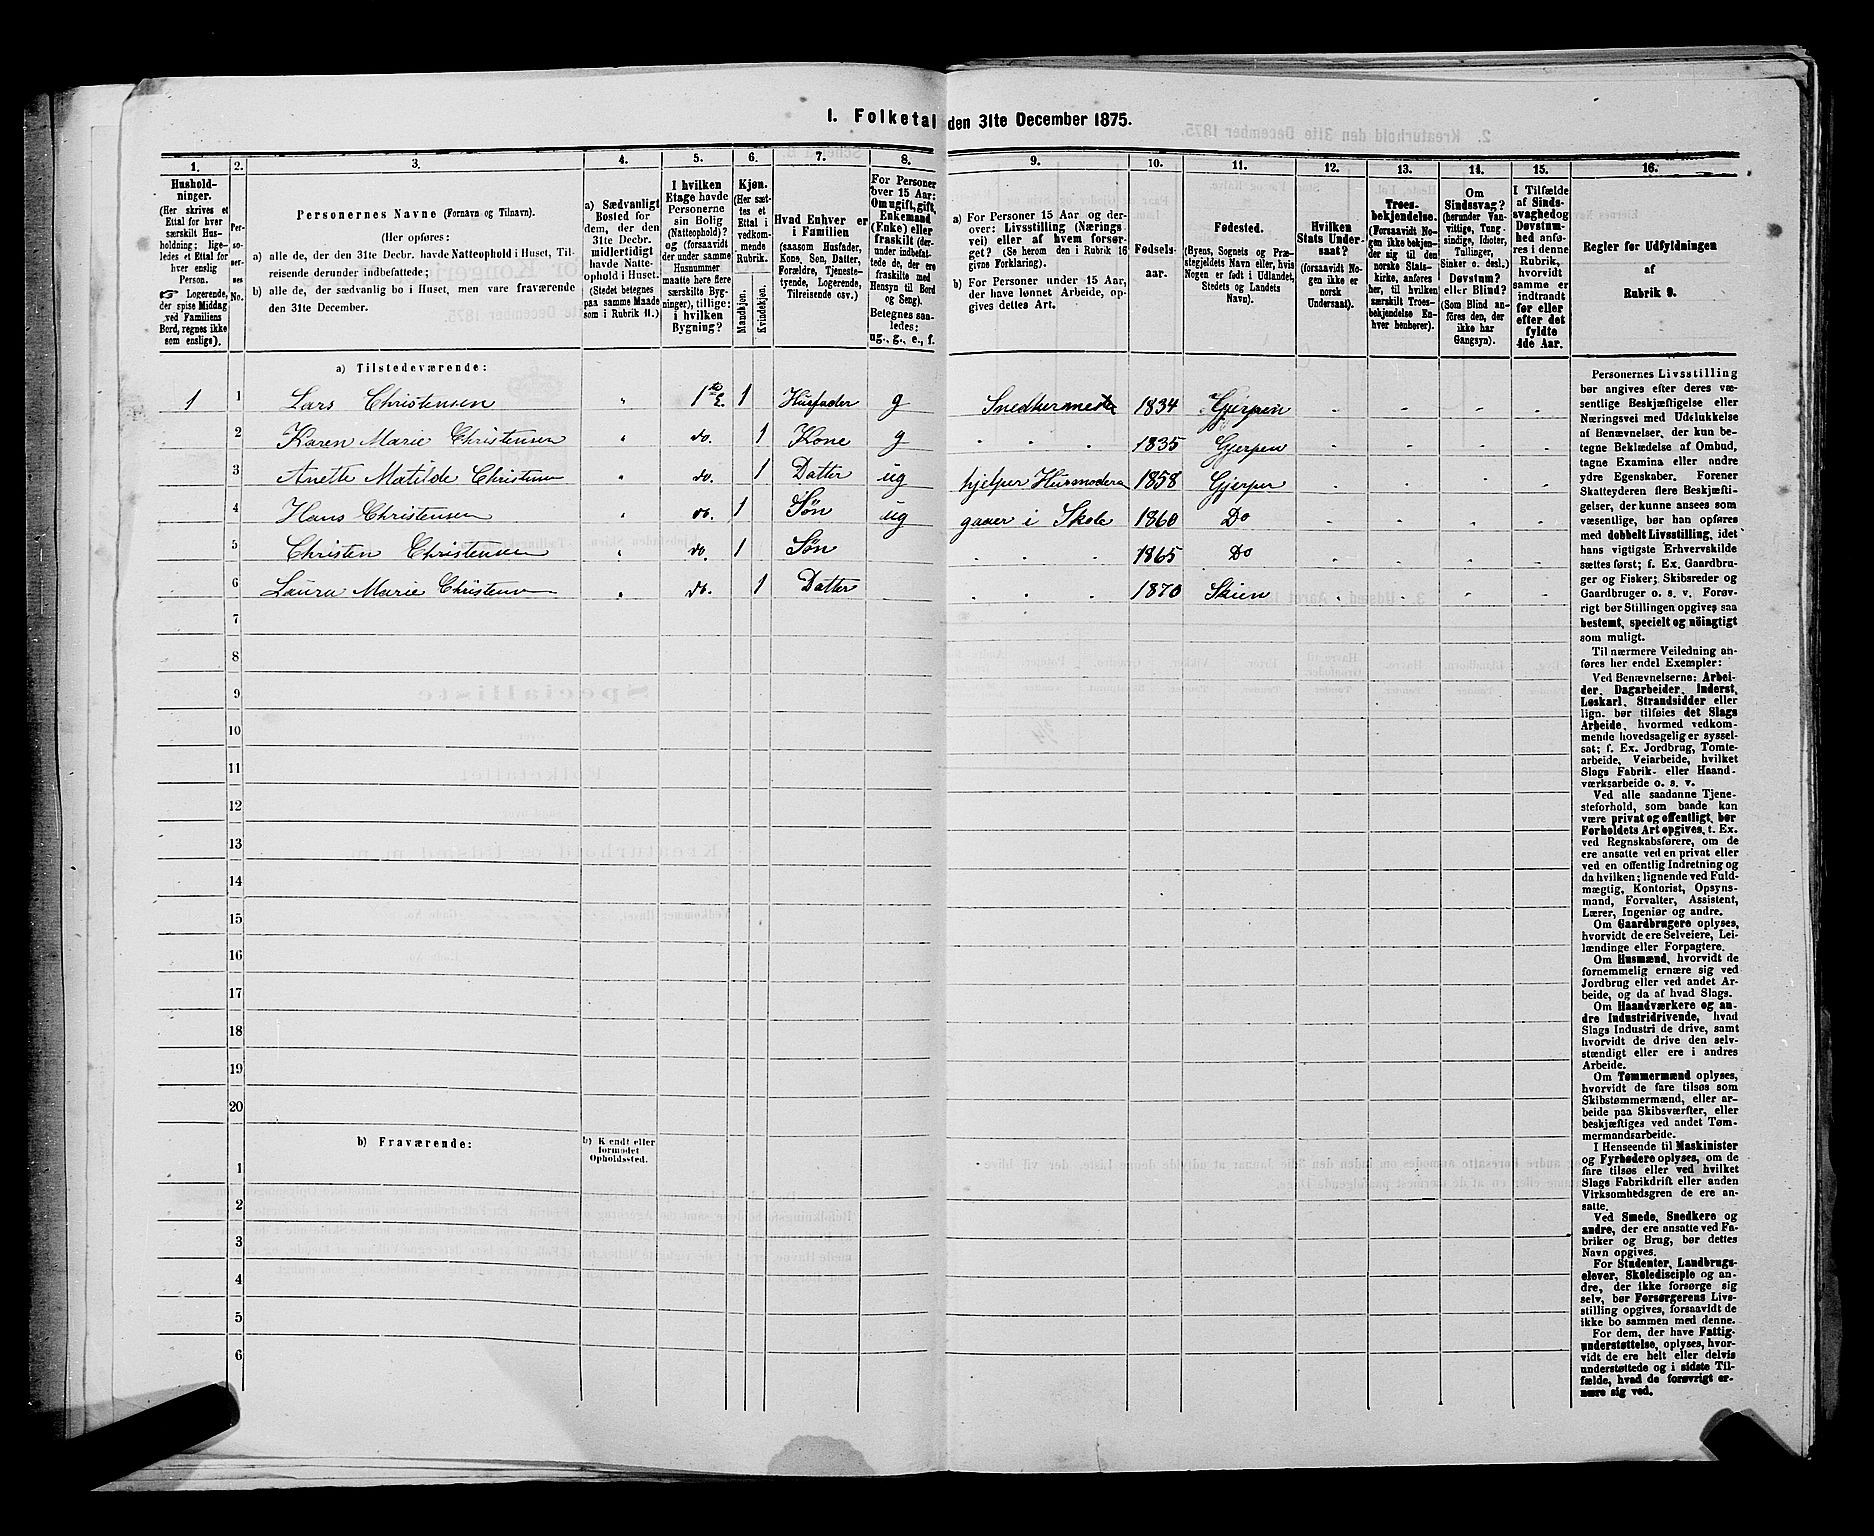 1. Folketal den 31te December 1875.
1.
Hushold-
ninger.
(Her skrives et
Ettal for hver
særskilt Hus-
holdning; lige-
ledes et Ettal for
hver enslig
Person.
☞ Logerende,
der spise Middag
ved Familiens
Bord, regnes ikke
som enslige).
2.
Per-
so-
ner-
nes
No.
3.
Personernes Navne (Fornavn og Tilnavn).
(Her opføres:
a) alle de, der den 31te Decbr. havde Natteophold i Huset, Til-
reisende derunder indbefattede;
b) alle de, der sædvanlig bo i Huset, men vare fraværende
den 31te December.
4.
a) Sædvanligt
Bosted for
dem, der den
31te Decbr.
midlertidigt
havde Natte-
ophold i Huset.
(Stedet betegnes
paa samme Maade
som i Rubrik 11.)
5.
I hvilken
Etage havde
Personerne
sin Bolig
(Natteophold)?
og (forsaavidt
der under samme
Husnummer
maatte høre flere
særskilte Byg-
ninger), tillige:
i hvilken
Bygning?
6.
Kjøn.
(Her sæt-
tes et
Ettal i
vedkom-
mende
Rubrik.
Mandkjøn.
Kvindekjøn.
7.
Hvad Enhver er
i Familien
(saasom Husfader,
Kone, Søn, Datter,
Forældre, Tjeneste-
tyende, Logerende,
Tilreisende osv.)
8.
For Personer
over 15 Aar:
Om ugift, gift,
Enkemand
(Enke) eller
fraskilt (der-
under indbefat-
tede de, der ere
fraskilte med
Hensyn til Bord
og Seng).
Betegnes saa-
ledes:
ug., g., e., f.
9.
a) For Personer 15 Aar og der-
over: Livsstilling (Nærings-
vei) eller af hvem forsør-
get? (Se herom den i Rubrik 16
givne Forklaring).
b) For Personer under 15 Aar,
der have lønnet Arbeide, op-
gives dettes Art.
10.
Fødsels-
aar.
11.
Fødested.
(Byens, Sognets og Præ-
stegjeldets Navn eller, hvis
Nogen er født i Udlandet,
Stedets og Landets
Navn).
12.
Hvilken
Stats Under-
saat?
(forsaavidt No-
gen ikke er
norsk
Undersaat).
13.
Troes-
bekjendelse.
(Forsaavidt No-
gen ikke bekjen-
der sig til den
norske Stats-
kirke, anføres
her, til hvilken
særskilt Troes-
bekjendelse En-
hver henhører).
14.
Om
Sindssvag?
(herunder Van-
vittige, Tung-
sindige, Idioter,
Tullinger,
Sinker o. desl.)
Døvstum?
eller Blind?
(Som Blind an-
føres den, der
ikke har
Gangsyn).
15.
I Tilfælde
af Sinds-
svaghed og
Døvstum-
hed anfø-
res i denne
Rubrik,
hvorvidt
samme er
indtraadt
før eller
efter det
fyldte
4de Aar.
16.
Regler for Udfyldningen
af
Rubrik 9.
a) Tilstedeværende:
1 1 Lars Christensen " 1ste E. 1 Husfader g Snedkermester 1834 Gjerpen
2 Karen Marie Christensen " do. 1 Kone g 1835 Gjerpen
3 Anette Matilde Christensen " do. 1 Datter ug hjelper Husmoderen 1858 Gjerpen
4 Hans Christensen " do. 1 Søn ug gaaer i Skole 1860 Do
5 Christen Christensen " do. 1 Søn 1865 Do
6 Laura Marie Christensen " do. 1 Datter 1870 Skien
7
8
9
10
11
12
13
14
15
16
17
18
19
20
b) Fraværende:
b) Kendt eller
formodet
Opholdssted.
1
2
3
4
5
6
Personernes Livsstilling
bør angives efter deres væ-
sentlige Beskjæftigelse eller
Næringsvei med Udelukkelse
af Benævnelser, der kun be-
tegne Beklædelse af Ombud,
tagne Examina eller andre
ydre Egenskaber. Forener
Skatteyderen flere Beskjæfti-
gelser, der kunne ansees som
væsentlige, bør han opføres
med dobbelt Livsstilling, idet
hans vigtigste Erhvervskilde
sættes først; f. Ex. Gaardbru-
ger og Fisker; Skibsreder og
Gaardbruger o. s. v. Forøv-
rigt bør Stillingen opgives saa
bestemt, specielt og nöiagtigt
som muligt.
Til nærmere Veiledning an-
føres her endel Exempler:
Ved Benævnelserne: Arbei-
der, Dagarbeider, Inderst,
Løskarl, Strandsidder eller
lign. bør tilføies det Slags
Arbeide, hvormed vedkom-
mende hovedsagelig er syssel-
sat; f. Ex. Jordbrug, Tomte-
arbeide, Veiarbeide, hvilket
Slags Fabrik- eller Haand-
værksarbeide o. s. v.
Ved alle saadanne Tjene-
steforhold, som baade kan
være privat og offentligt, bør
Forholdets Art opgives, t. Ex.
ved Regnskabsførere, om de
ere ansatte ved en privat eller
ved en offentlig Indretning og
da hvilken; lignende ved Fuld-
mægtig, Kontorist, Opsyns-
mand, Forvalter, Assistent,
Lærer, Ingeniør og andre.
Om Gaardbrugere oplyses,
hvorvidt de ere Selveiere, Lei-
lændinge eller Forpagtere.
Om Husmænd, hvorvidt de
fornemmelig ernære sig ved
Jordbrug eller ved andet Ar-
beide, og da af hvad Slags.
Om Haandværkere og an-
dre Industridrivende, hvad
Slags Industri de drive, samt
hvorvidt de drive den selv-
stændigt eller ere i andres
Arbeide.
Om Tømmermænd oplyses,
hvorvidt de fare tilsøs som
Skibstømmermænd, eller ar-
beide paa Skibsværfter, eller
beskjæftiges ved andet Tøm-
mermandsarbeide.
I Henseende til Maskinister
og Fyrbødere oplyses, om de
fare tilsøs eller ved hvilket
Slags Fabrikdrift eller anden
Virksomhedsgren de ere an-
satte.
Ved Smede, Snedkere og
andre, der ere ansatte ved Fa-
briker og Brug, bør dettes
Navn opgives.
For Studenter, Landbrugs-
elever, Skoledisciple og an-
dre, der ikke forsørge sig
selv, bør Forsørgerens Livs-
stilling opgives, forsaavidt de
ikke bo sammen med denne.
For dem, der have Fattig-
understøttelse, oplyses, hvor-
vidt de ere helt eller delvis
understøttede og i sidste Til-
fælde, hvad de forøvrigt er-
nære sig ved.